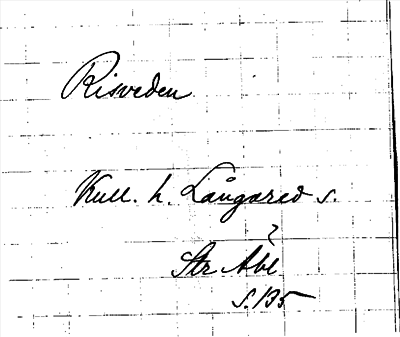 Risveden
Kull. h. Långared s.
?
Str Åbl
S. 135